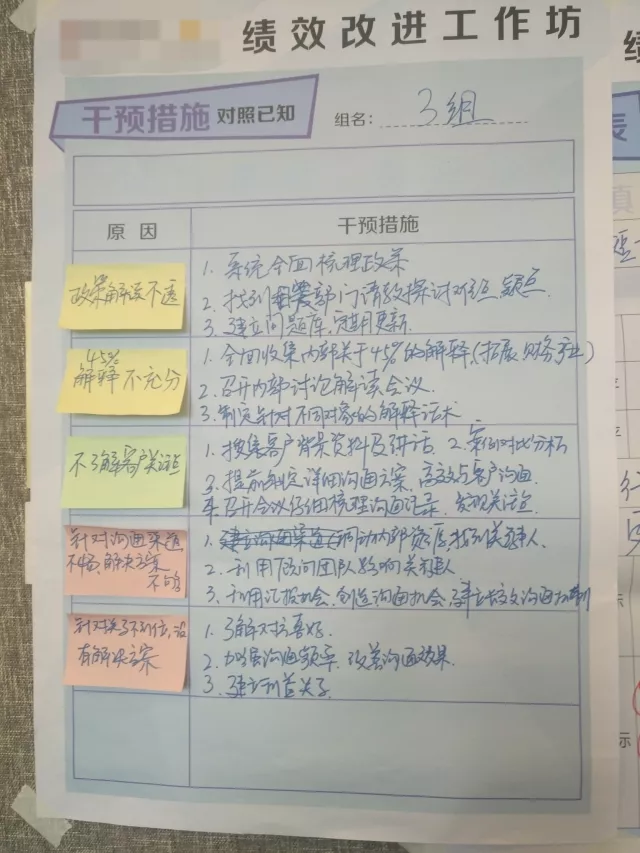 绩效改进工作坊
干预措施 对照已知
组名: 3组
原因
干预措施
政策解读不透
1. 系统全面梳理政策
2. 找到相关部门请教探讨对 疑点
3. 建立问题库,定期更新
45%
解释不充分
1. 全面收集内部关于45%的解释(拓展、财务、产业)
2. 召开内部讨论解读会议
3. 制定针对不同对象的解释话术
不了解客户关注点
1. 搜集客户背景资料及讲话 2. 案例对比分析
3. 提前制定详细沟通方案,高效与客户沟通
4. 召开会议仔细梳理沟通记录,发现关注点
针对沟通渠道
不畅,解决方案
不够
1. 调动内部资源,找到关键人
2. 利用顾问团队影响关键人
3. 利用汇报机会,创造沟通机会,建立长效沟通机制
针对 不到位,没
有解决方案
1. 了解对方喜好
2. 加强沟通频率,改善沟通效果
3. 建立利益关系
绩
表
填
示